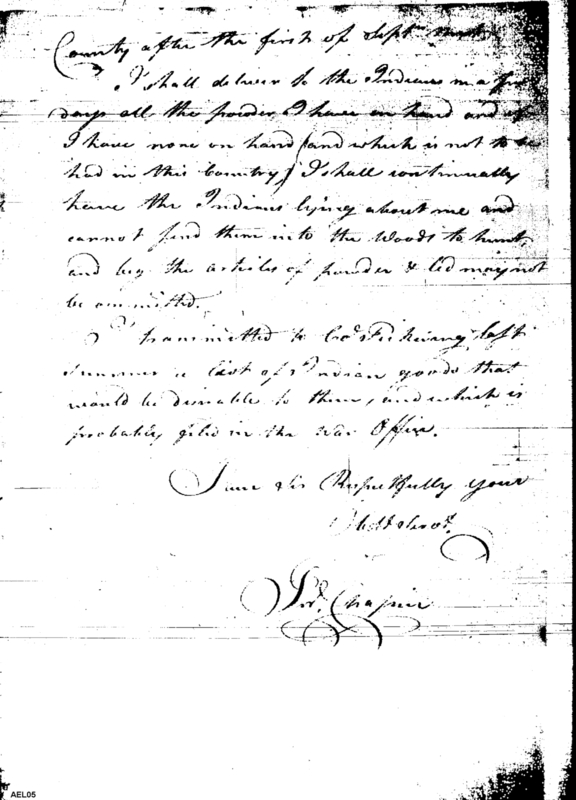 County after the first of Sept next.
I shall deliver to the Indians in a few
days all the powder I have on hand and if
I have none on hand (and which is not to be
had in this Country) I shall continually
have the Indians lying about me and
cannot send them into the woods to hunt,
and beg the articles of powder & led may not
be ommitted.
I transmitted to Col. Pickering last
summer a List of Indian goods that
would be desirable to them, and which is
probably filed in the War Office.
I am Sir Respectfully your
Obdt Servt.
Isrl. Chapin
AEL05